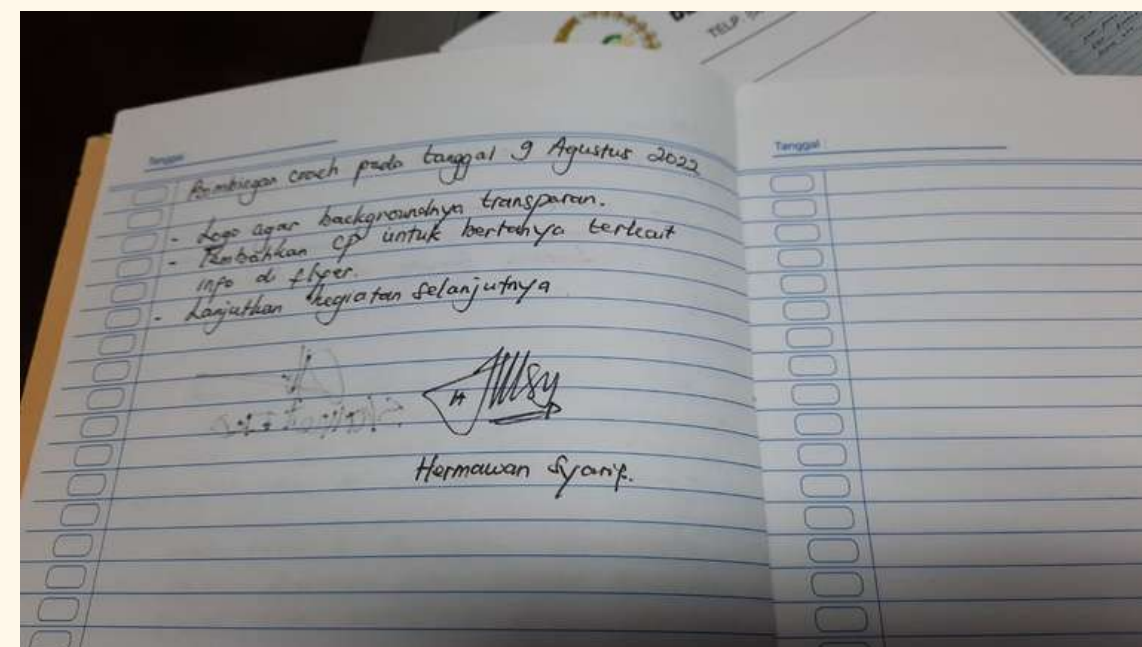 TELP.
Tanggal
Tanggal :
Bimbingan coach pada tanggal 9 Agustus 2022
- Logo agar backgroundnya transparan.
- Tambahkan CP untuk bertanya terkait
info di flyer.
- Lanjutkan kegiatan selanjutnya
Hermawan Syarif.